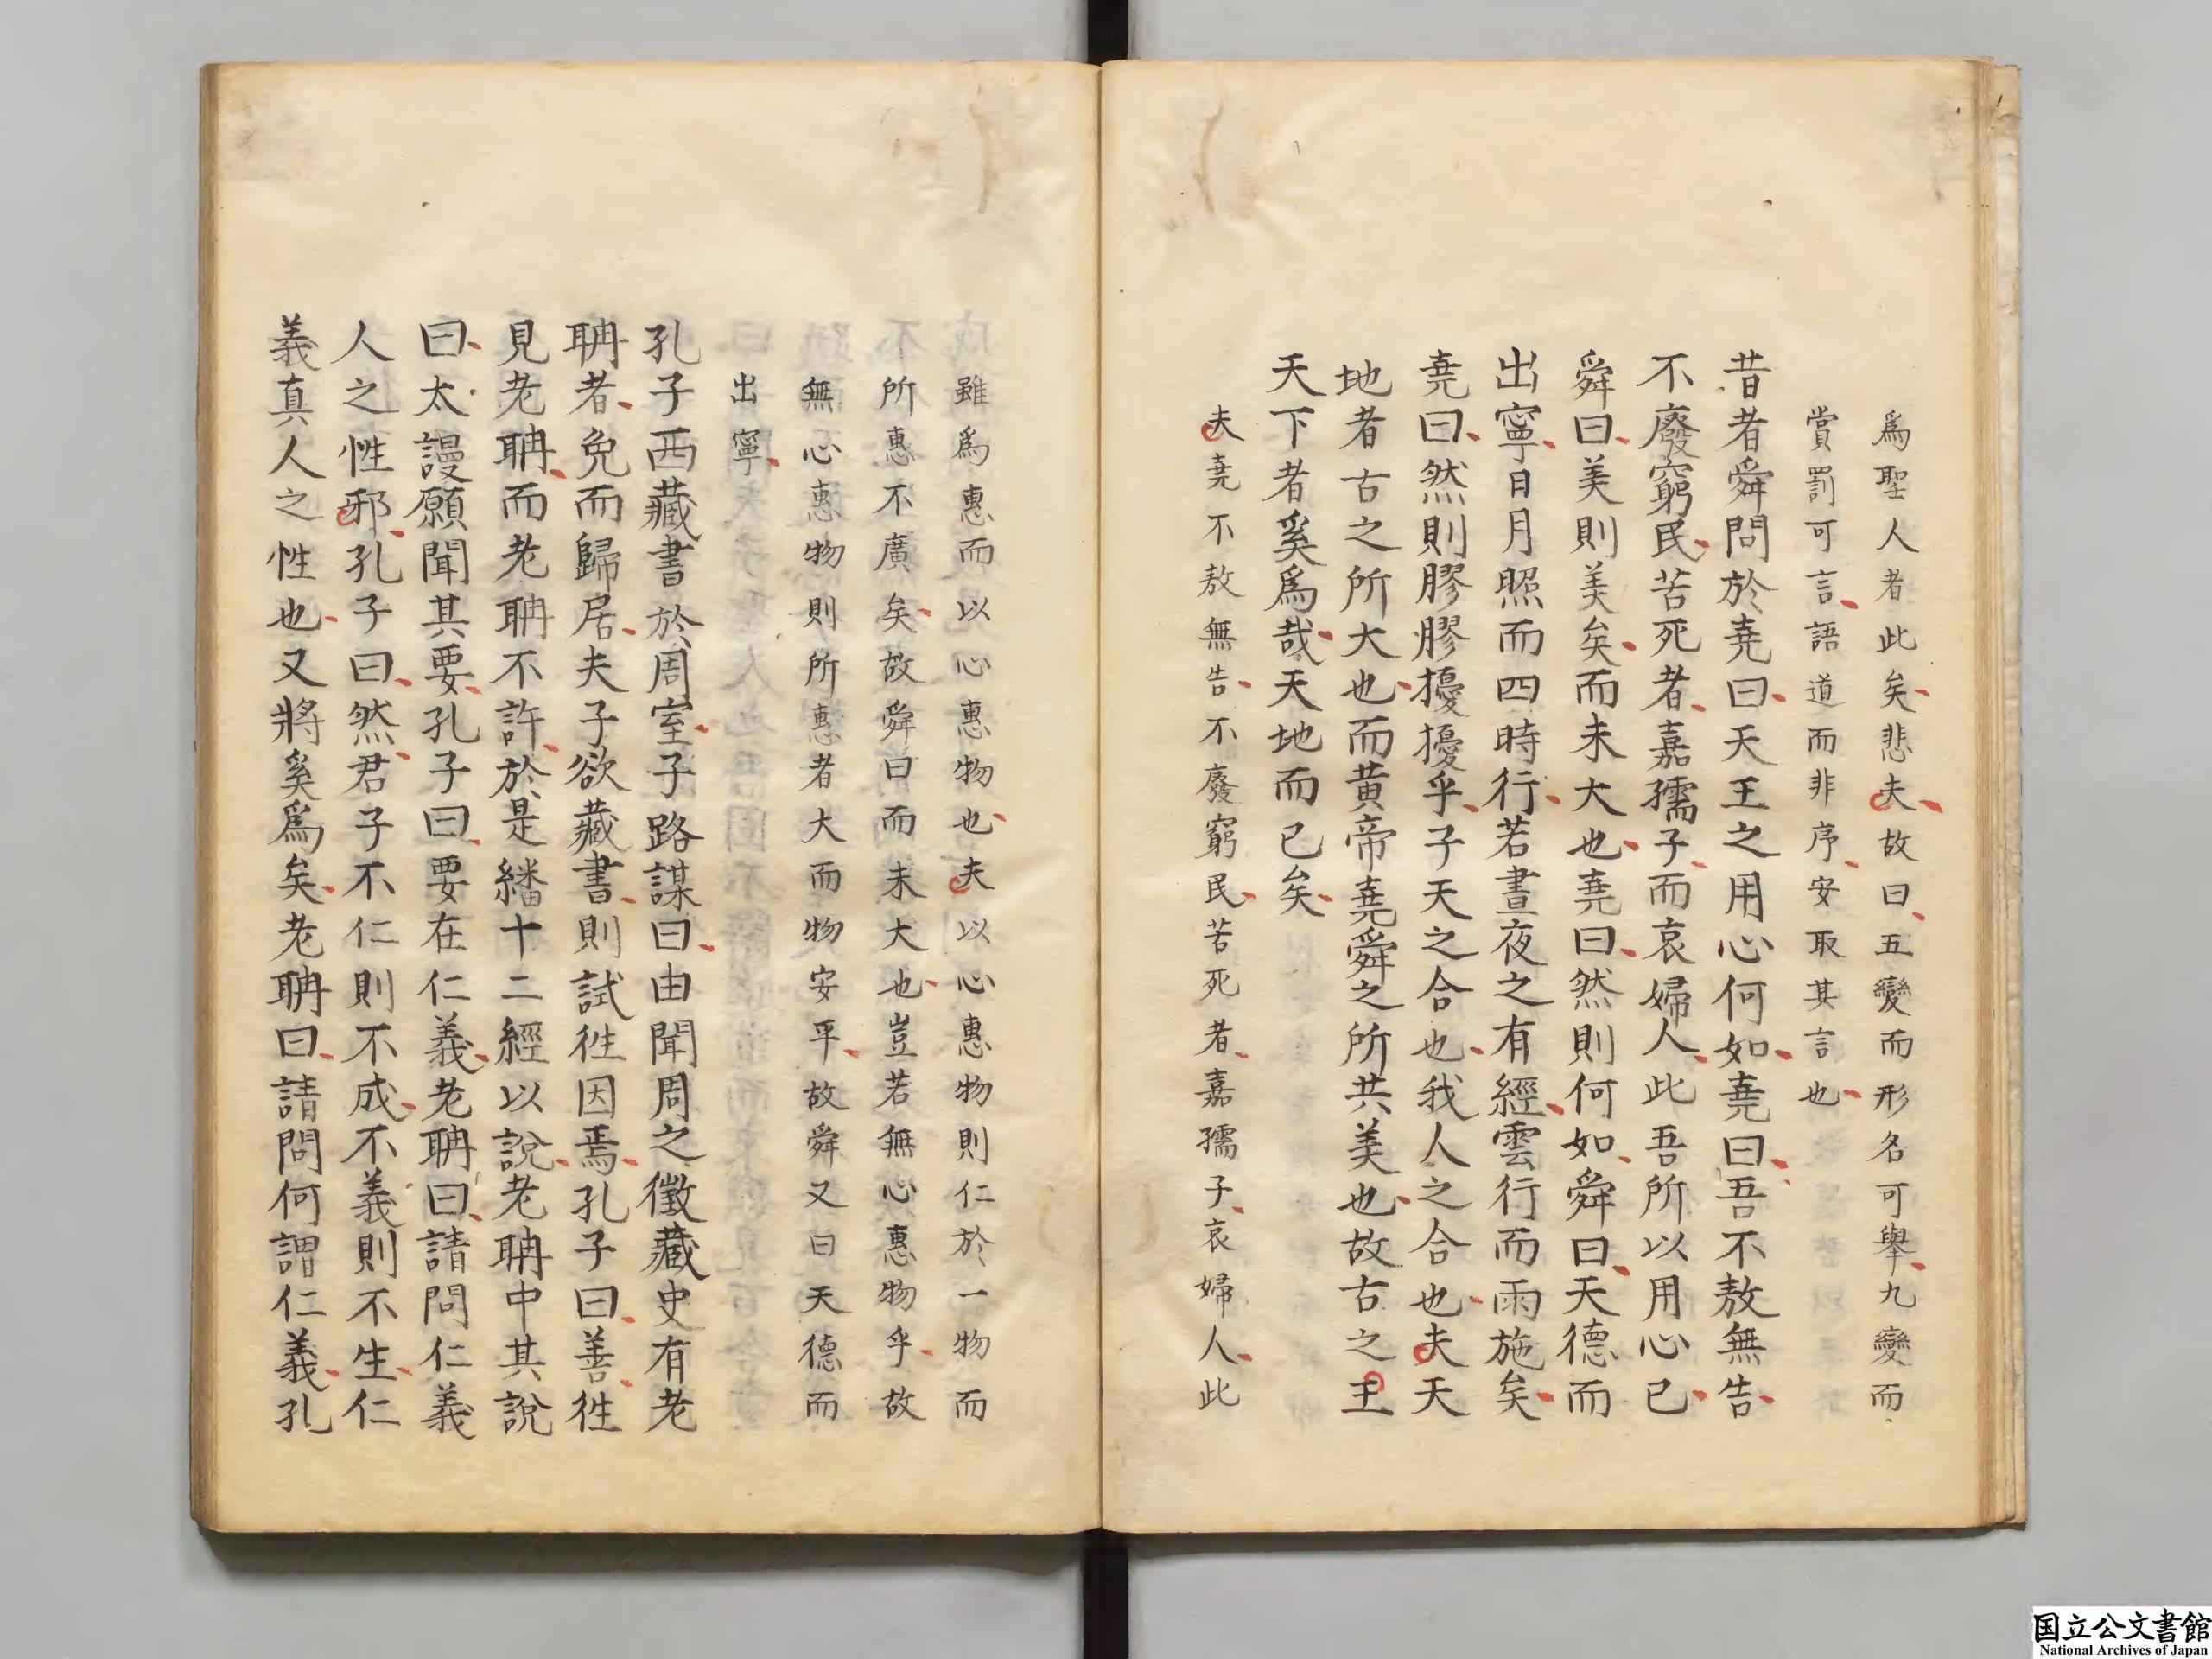 爲聖人者此矣悲夫故曰五變而形名可舉九變而
賞罰可言語道而非序安取其言也
昔者舜問於堯曰天王之用心何如堯曰吾不敖無告
不廢窮民苦死者嘉孺子而哀婦人此吾所以用心已
舜曰美則美矣而未大也堯曰然則何如舜曰天德而
出寧日月照而四時行若晝夜之有經雲行而雨施矣
堯曰然則膠膠擾擾乎子天之合也我人之合也夫天
地者古之所大也而黃帝堯舜之所共美也故古之王
天下者奚爲哉天地而已矣
夫堯不敖無告不廢窮民苦死者嘉孺子哀婦人此
雖爲惠而以心惠物也夫以心惠物則仁於一物而
所惠不廣矣故舜曰而未大也豈若無心惠物乎故
無心惠物則所惠者大而物安平故舜又曰天德而
出寧
孔子西藏書於周室子路謀曰由聞周之徵藏史有老
聃者免而歸居夫子欲藏書則試徃因焉孔子曰善徃
見老聃而老聃不許於是繙十二經以說老聃中其說
曰太謾願聞其要孔子曰要在仁義老聃曰請問仁義
人之性邪孔子曰然君子不仁則不成不義則不生仁
義真人之性也又將奚爲矣老聃曰請問何謂仁義孔
国立公文書館
National Archives of Japan